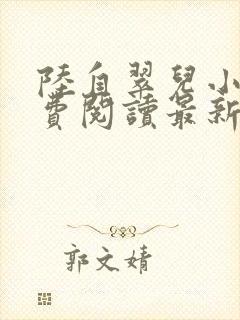 陸自翠兒小
費閱讀最新
郭文婧